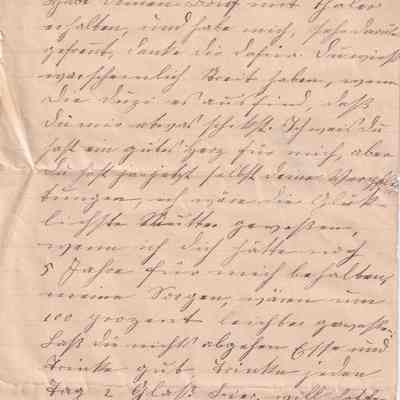 habe deinen Brief mit Thaler
erhalten, und habe mich, sehr darüber
gefreut, danke dir dafür. Du wirst
warscheinlich Streit haben, wenn
die es ausfind, daß
du mir etwas schikst. Ich weis du
hast ein gutes Herz für mich, aber
du hast ja jetzt selbst deine Verpflich
tungen, ich wäre die Glük-
lichste Mutter geweßen,
wenn ich dich hätte noch
5 Jahre für mich behalten,
meine Sorgen, wären um
100 prozent leichter geweßen.
Laß du nichts abgehen Esse und
Trinke gut, Trinke jeden
Tag 2 Glaß Bier, will